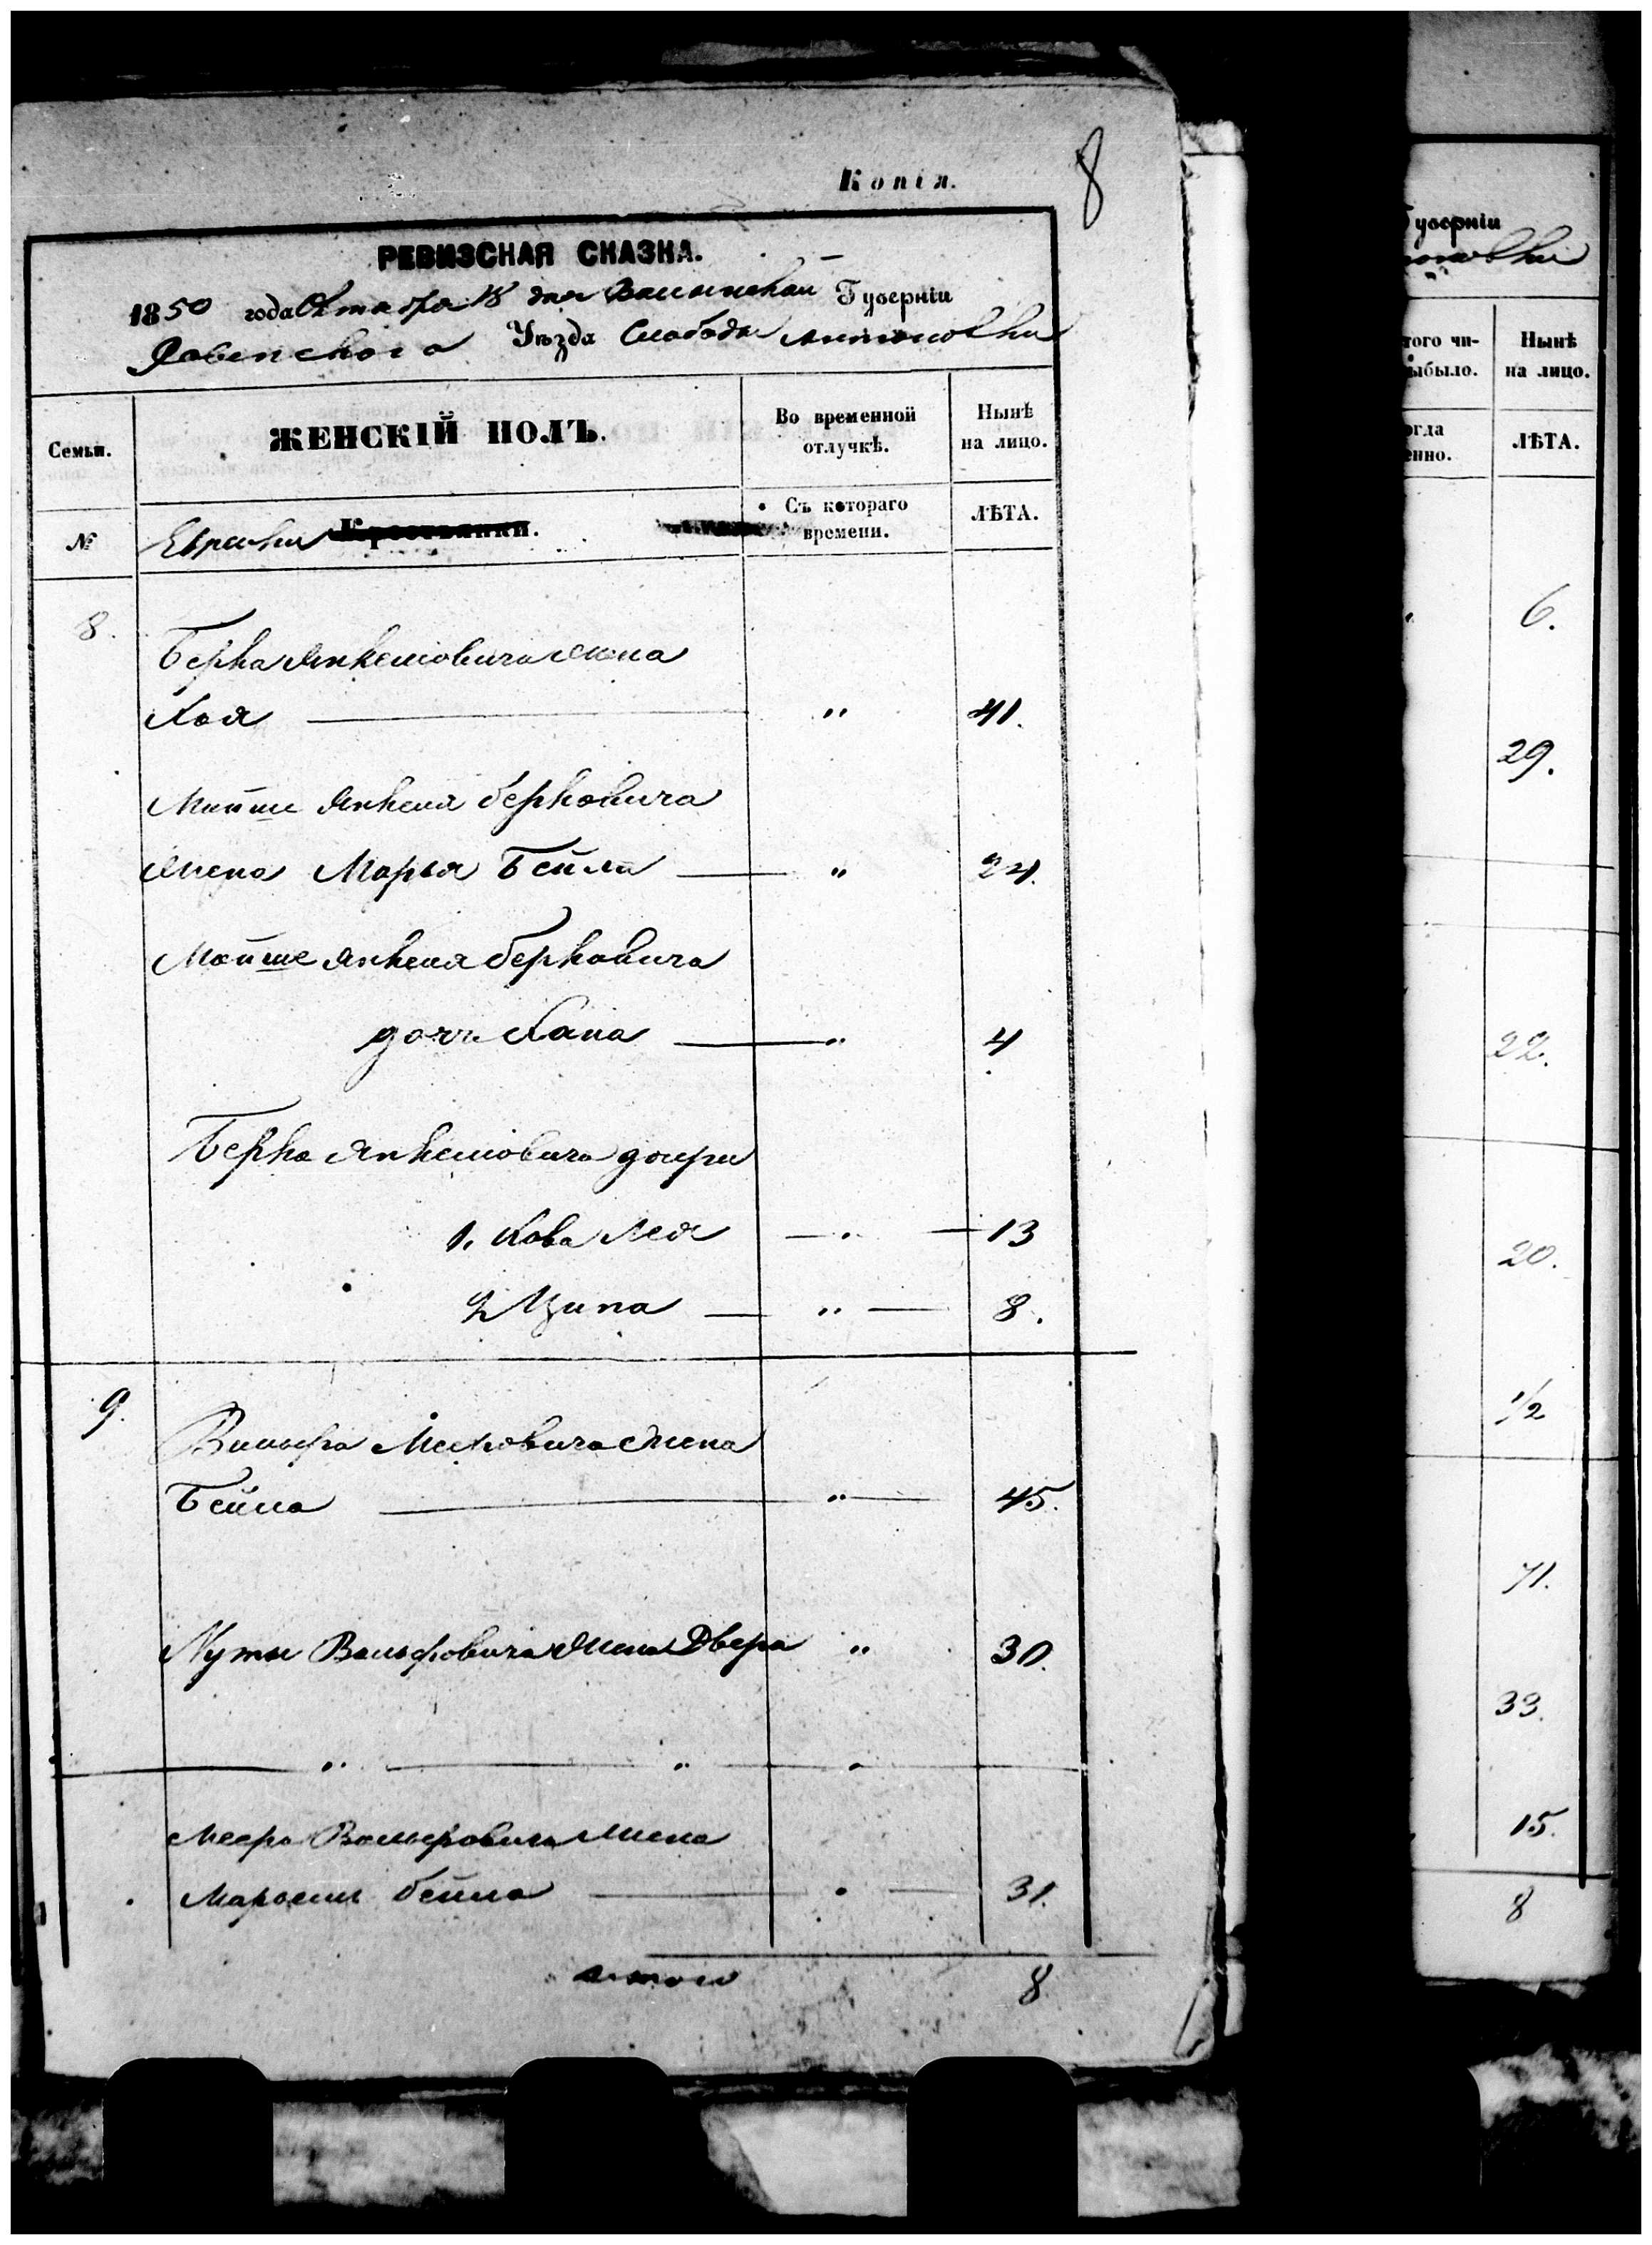 Копія. 8
РЕВИЗСКАЯ СКАЗКА.
1850 года Октября 18 дня Волынской Губерніи
Ровенского Уѣзда Слободы Антоновки
Семьи. ЖЕНСКІЙ ПОЛЪ. Во временной отлучкѣ. Нынѣ на лицо.
№ Еврейки Крестьянки. Съ котораго времени. ЛѢТА.
8. Берка Янкелювича жена
Хая " 41.
Мойше Янкеля Берковича
жена Марья Бейла " 24.
Мойше Янкеля Берковича
дочь Хана " 4
Берка Янкелювича дочери
1. Хова Лея " 13
2 Ципа " 8.
9. Вольфа Мееровича жена
Бейла " 45.
Муты Вольфовича жена Двера " 30.
" " "
Меера Вольфовича жена
Марьем Бейла " 31.
итого 8
Губерніи
новки
того чи- Нынѣ
ыбыло. на лицо.
огда ЛѢТА.
енно.
6.
29.
22.
20.
1/2
71.
33.
15.
8